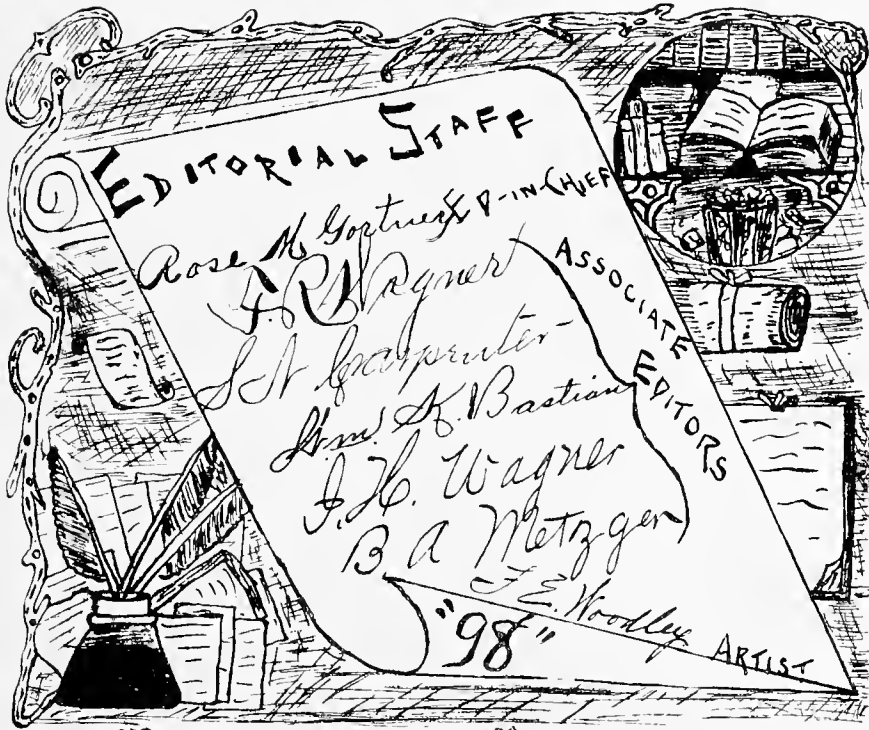 EDITORIAL STAFF
Rose M Gortner ED-IN-CHIEF
F. R. Wagner
S N Carpenter
Wm. K. Bastian
J. H. Wagner
B A Metzger
ASSOCIATE EDITORS
F. E. Woodley ARTIST
"98"